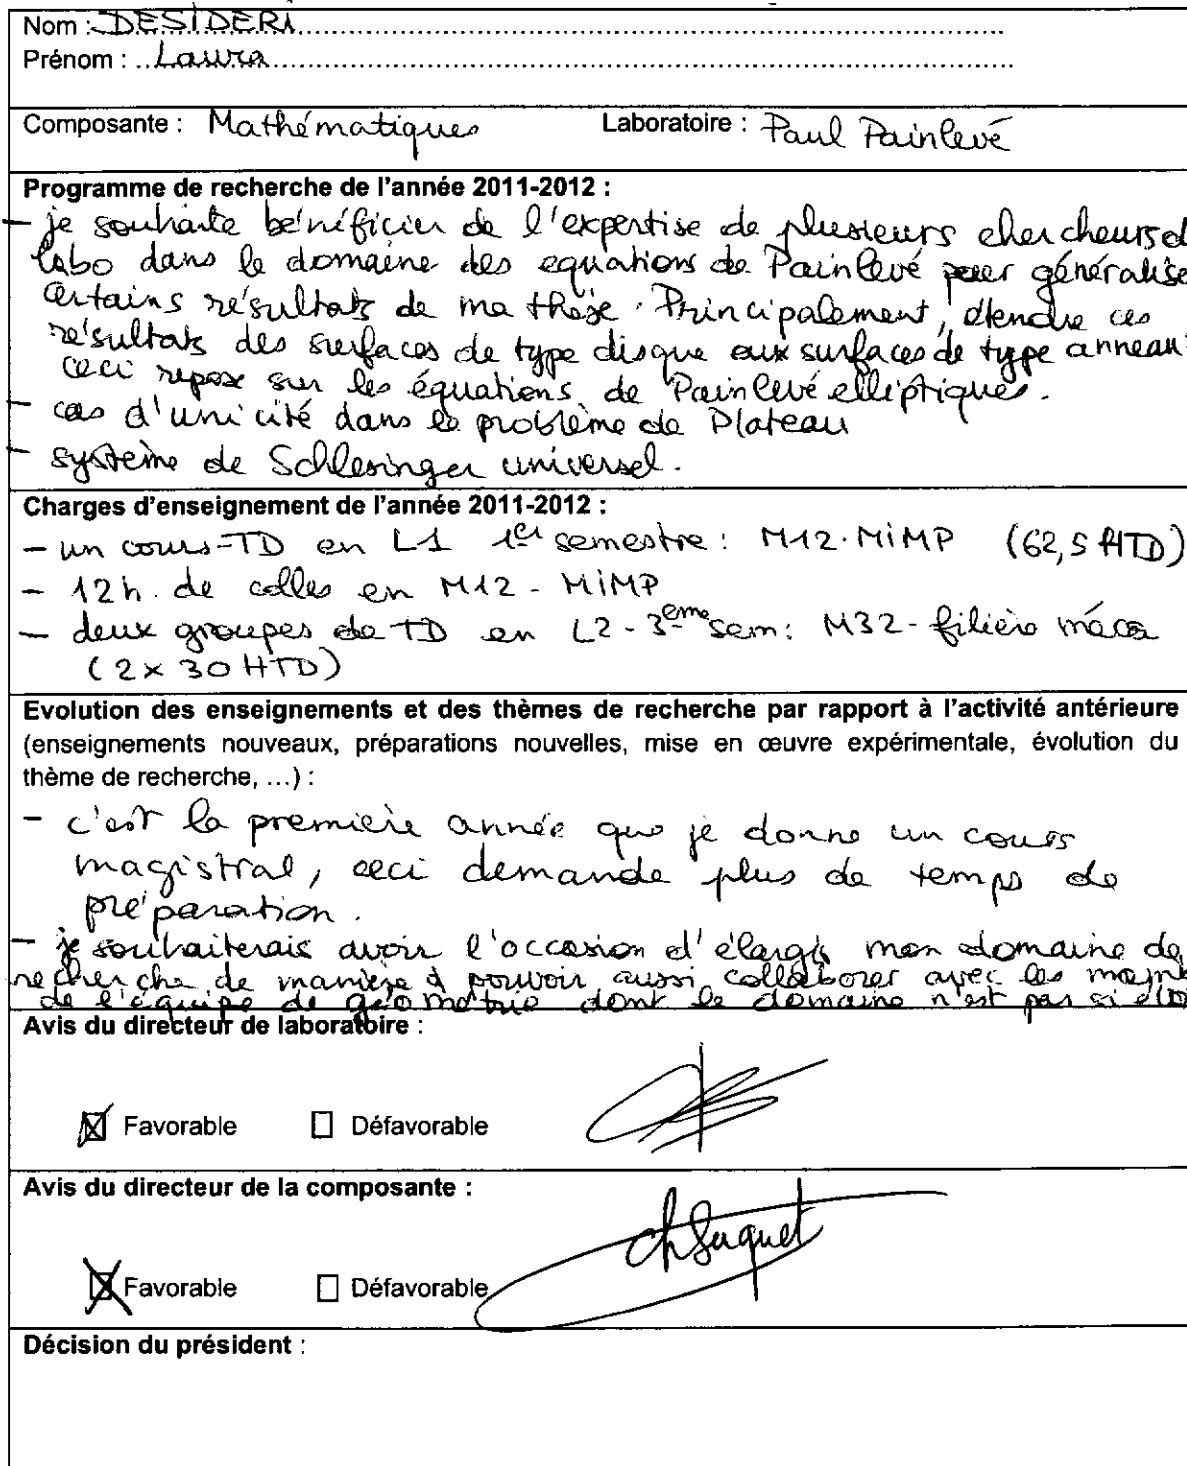 Nom : DESIDERI
Prénom : Laura
Composante : Mathématiques Laboratoire : Paul Painlevé
Programme de recherche de l'année 2011-2012 :
- je souhaite bénéficier de l'expertise de plusieurs chercheurs d
labo dans le domaine des equations de Painlevé pour généralise
certains résultats de ma thèse. Principalement, étendre ces
résultats des surfaces de type disque aux surfaces de type anneau
ceci repose sur les équations de Painlevé elliptiques.
- cas d'unicité dans le problème de Plateau
- système de Schlesinger universel.
Charges d'enseignement de l'année 2011-2012 :
- un cours-TD en L1 1er semestre : M12-MIMP (62,5 HTD)
- 12h de colles en M12 - MIMP
- deux groupes de TD en L2 - 3ème sem : M32 - filière méca
(2 x 30 HTD)
Evolution des enseignements et des thèmes de recherche par rapport à l'activité antérieure
(enseignements nouveaux, préparations nouvelles, mise en œuvre expérimentale, évolution du
thème de recherche, ...) :
- c'est la première année que je donne un cours
magistral, ceci demande plus de temps de
préparation.
- je souhaiterais avoir l'occasion d'élargir mon domaine de
recherche de manière à pouvoir aussi collaborer avec les
de l'équipe de géométrie dont le domaine n'est pas si éloi
Avis du directeur de laboratoire :
Favorable Défavorable
Avis du directeur de la composante :
Ch Suquet
Favorable Défavorable
Décision du président :